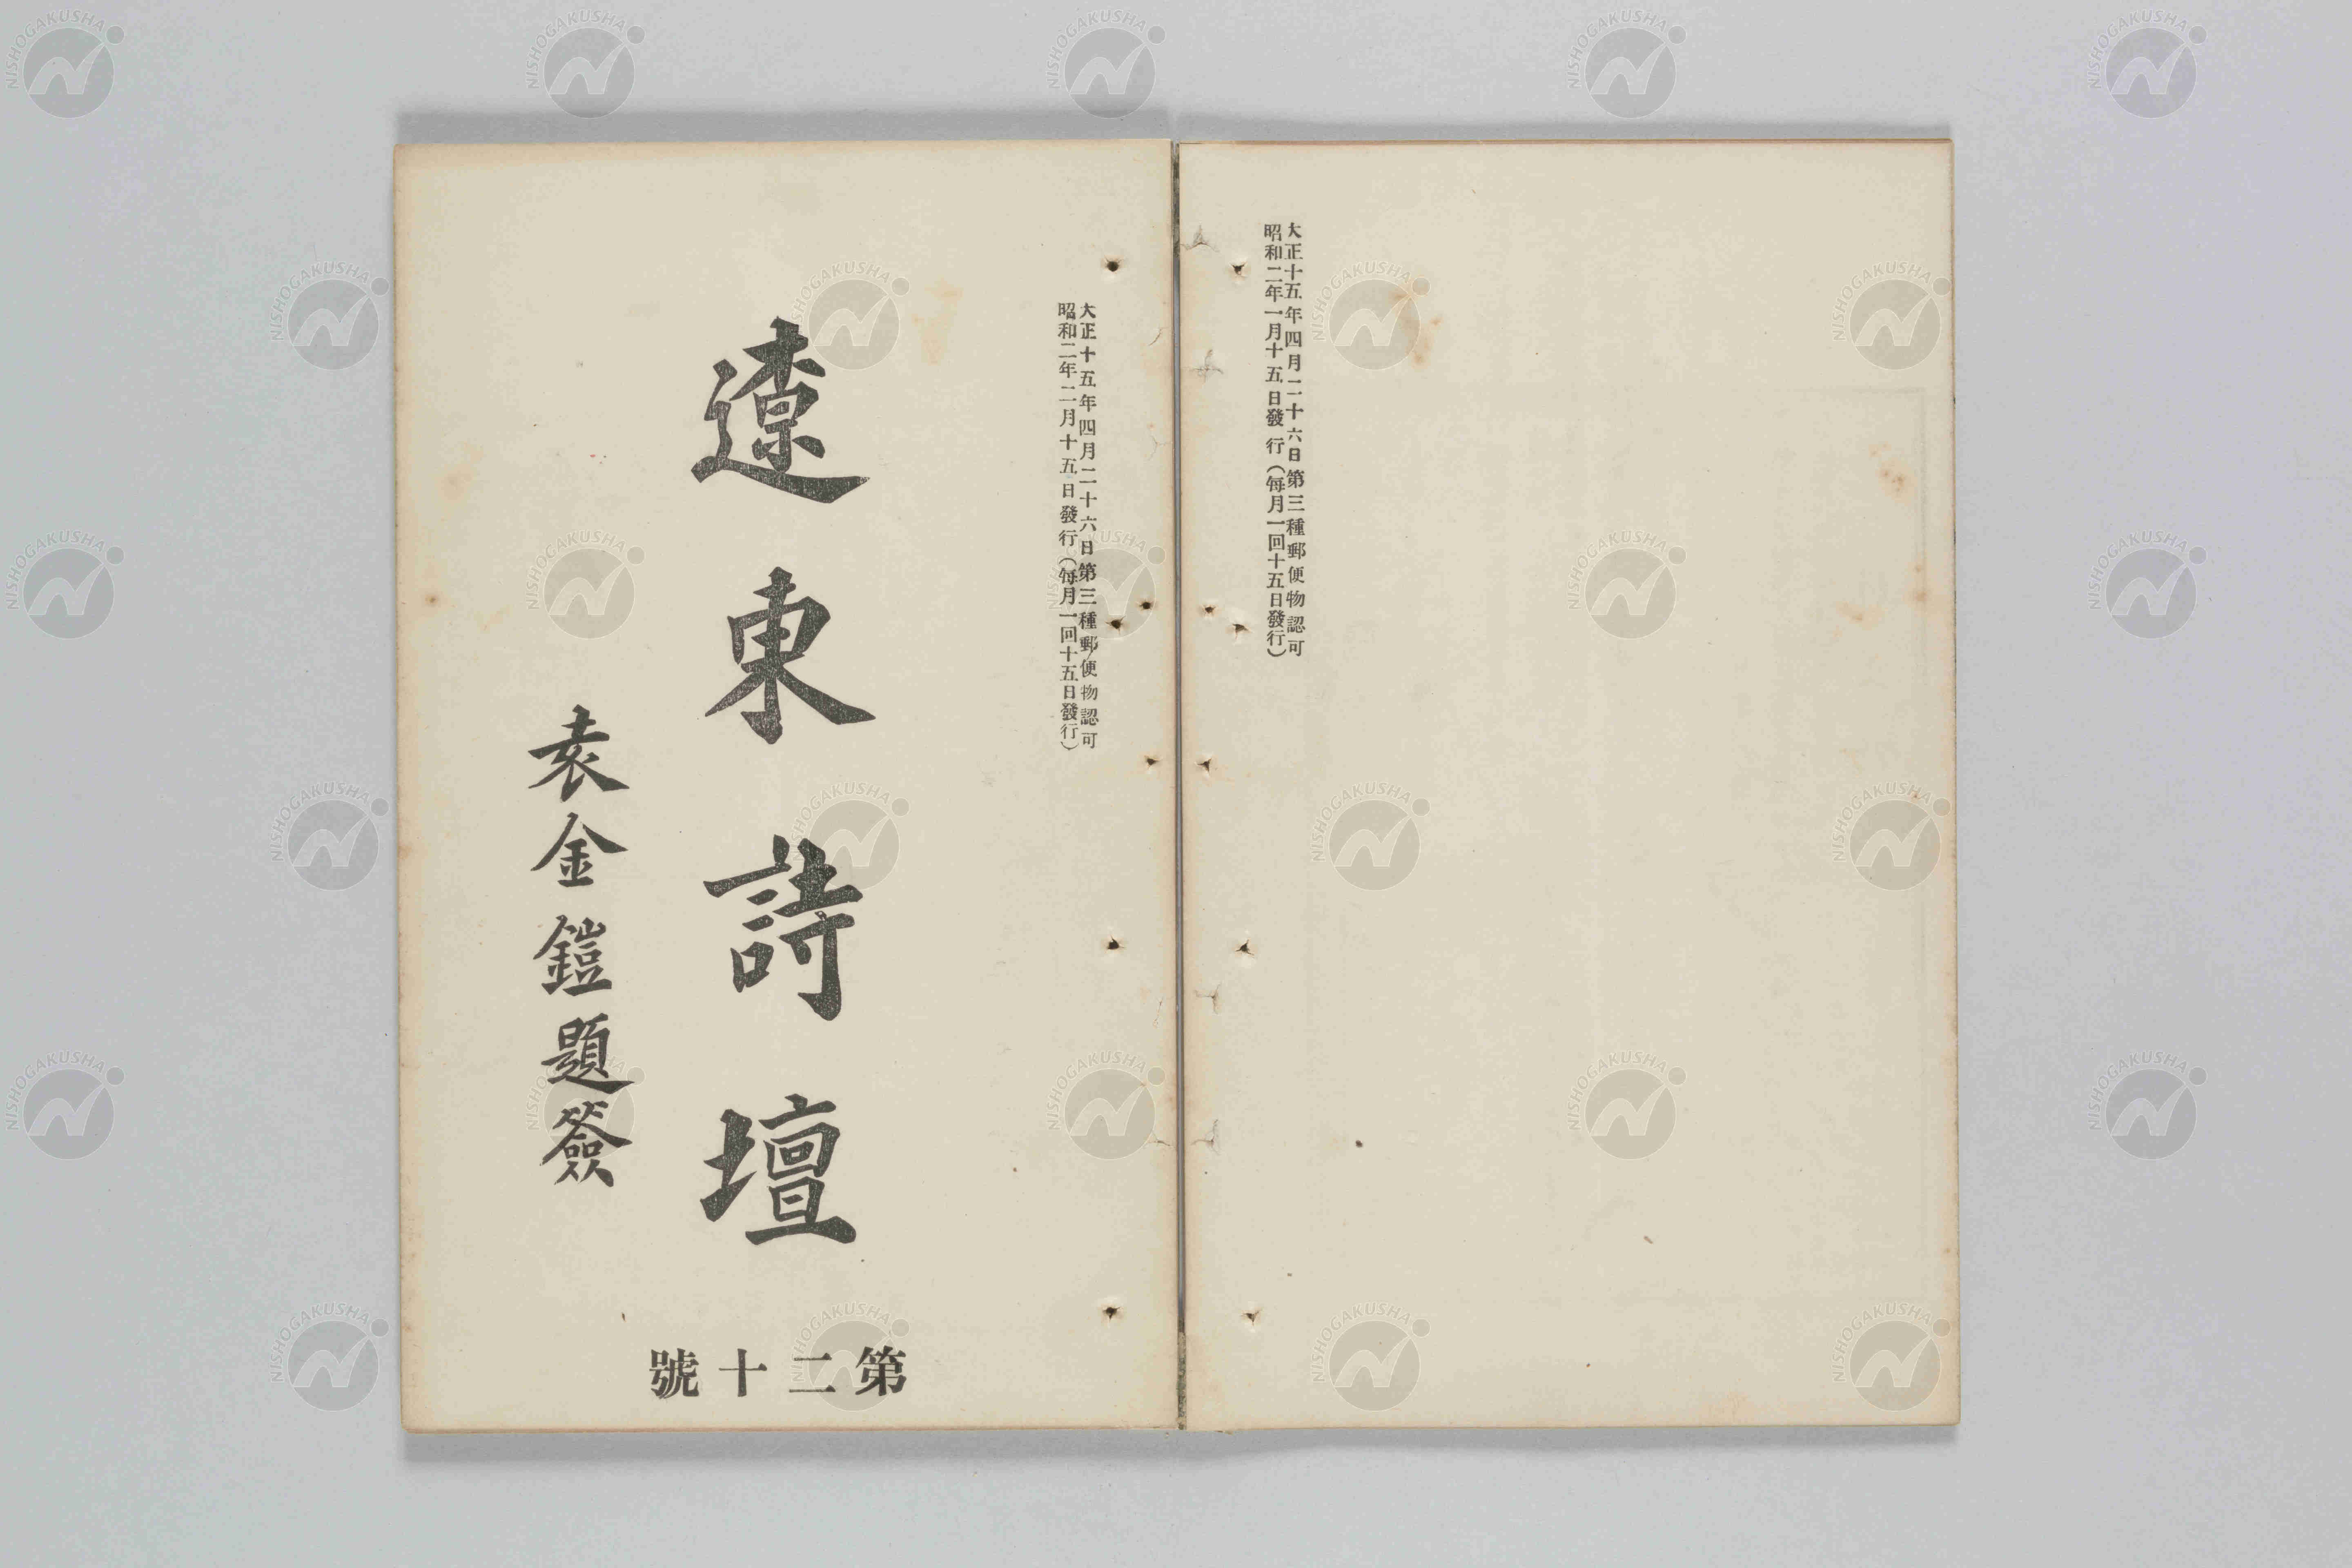 大正十五年四月二十六日第三種郵便物認可
昭和二年一月十五日發行(每月一回十五日發行)
大正十五年四月二十六日第三種郵便物認可
昭和二年二月十五日發行(每月一回十五日發行)
遼東詩壇
袁金鎧題簽
第二十號
NISHOGAKUSHA